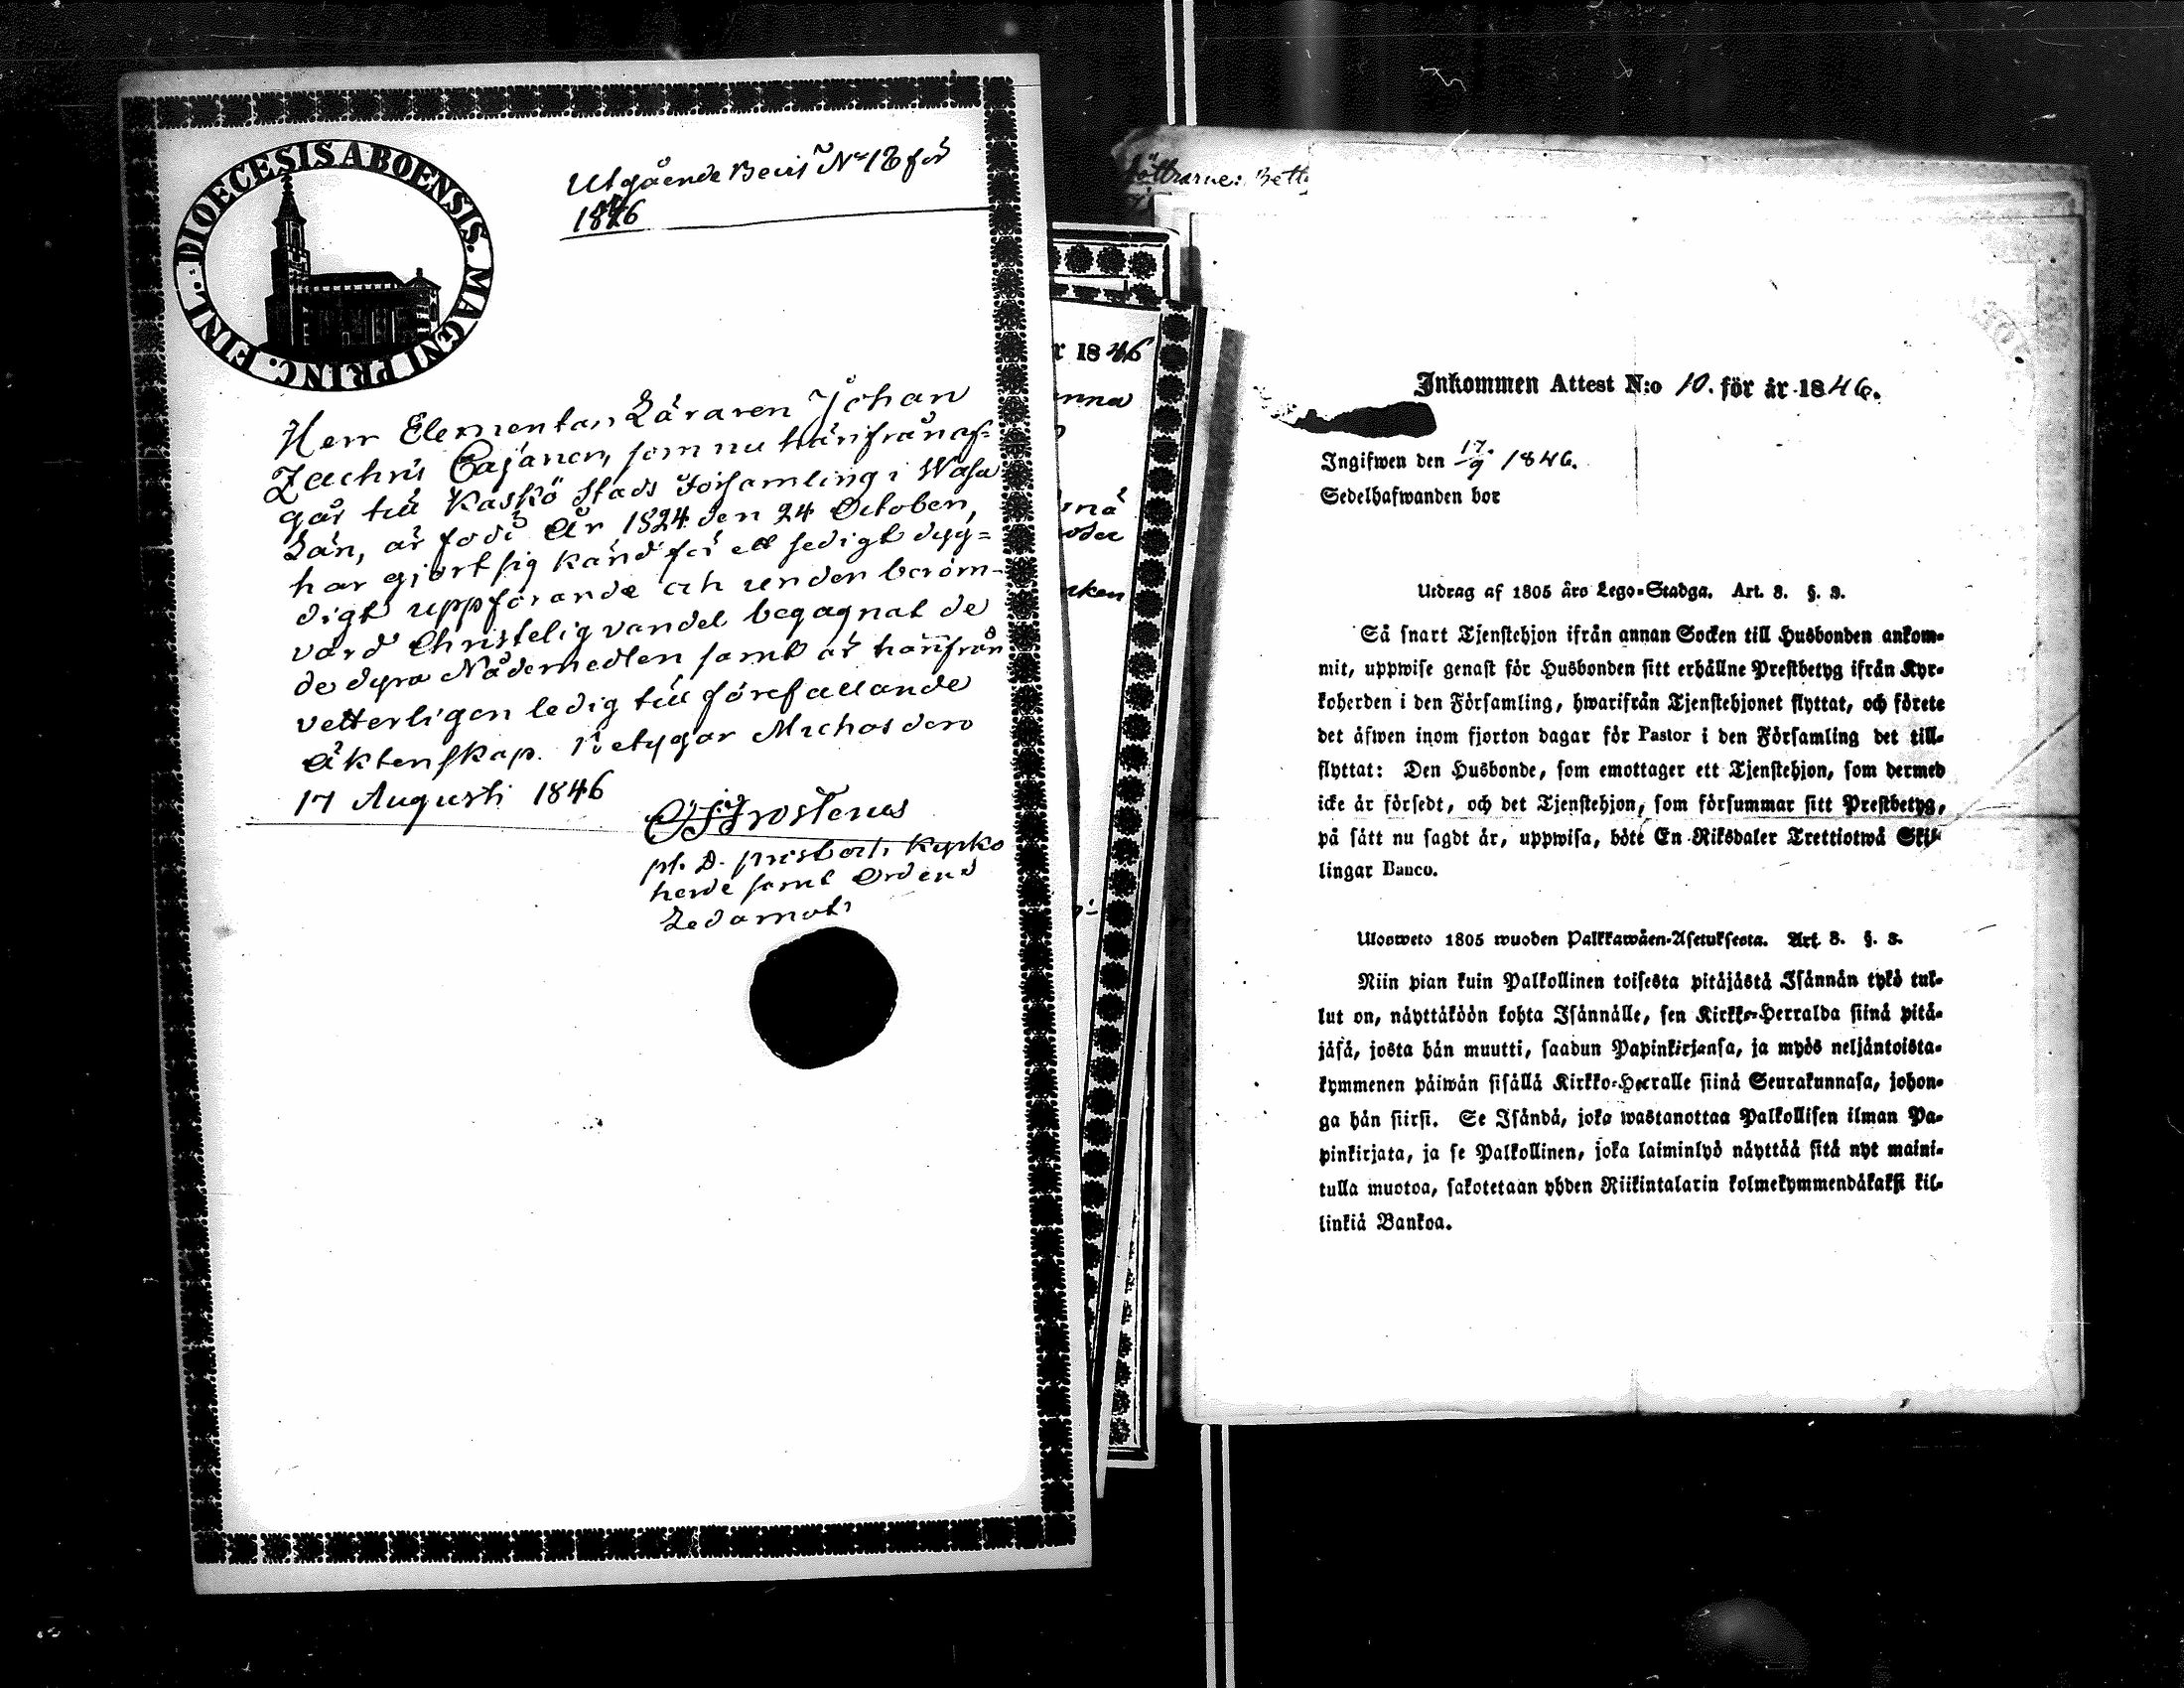 DIOECESIS ABOENSIS. MAGNI PRINC. FINL.
Utgående Bevis No 18 för
1846
Herr Elementar Läraren Johan
Zachris Cajanen, som nu härifrån af-
går till Kaskö Stads Församling i Wasa
Län, är född År 1824 den 24 October,
har gjort sig känd för ett sedigt dyg-
digt uppförande och under beröm-
värd Christelig vandel begagnat de
de dyra Nådemedlen samt är härifrån
vetterligen ledig till förefallande
Äktenskap. Betygar
17 Augusti 1846
Frosterus
Kyrko
herde samt Ordens
Ledamot
döttrarne: Betty
r 1846
anna
rnå
Inkommen Attest N:o 10. för år 1846.
Ingifwen den 17/9 1846.
Sedelhafwanden bor
Utdrag af 1805 års Lego-Stadga. Art. 3. §. 3.
Så snart Tjenstehjon ifrån annan Socken till Husbonden ankom-
mit, uppwise genast för Husbonden sitt erhållne Prestbetyg ifrån Kyr-
koherden i den Församling, hwarifrån Tjenstehjonet flyttat, och förete
det äfwen inom fjorton dagar för Pastor i den Församling det till-
flyttat: Den Husbonde, som emottager ett Tjenstehjon, som dermed
icke är försedt, och det Tjenstehjon, som försummar sitt Prestbetyg,
på sätt nu sagdt är, uppwisa, böte En Riksdaler Trettiotwå Skil-
lingar Banco.
Ulosweto 1805 wuoden Palkkawäen-Asetuksesta. Art. 3. §. 3.
Niin pian kuin Palkollinen toisesta pitäjästä Isännän tykö tul-
lut on, näyttäköön kohta Isännälle, sen Kirkko-Herralda siinä pitä-
jäsä, josta hän muutti, saadun Papinkirjansa, ja myös neljäntoista-
kymmenen päiwän sisällä Kirkko-Herralle siinä Seurakunnasa, johon-
ga hän siirsi. Se Isändä, joka wastanottaa Palkollisen ilman Pa-
pinkirjata, ja se Palkollinen, joka laiminlyö näyttää sitä nyt maini-
tulla muotoa, sakotetaan yhden Riikintalarin kolmekymmendäkaksi kil-
linkiä Bankoa.